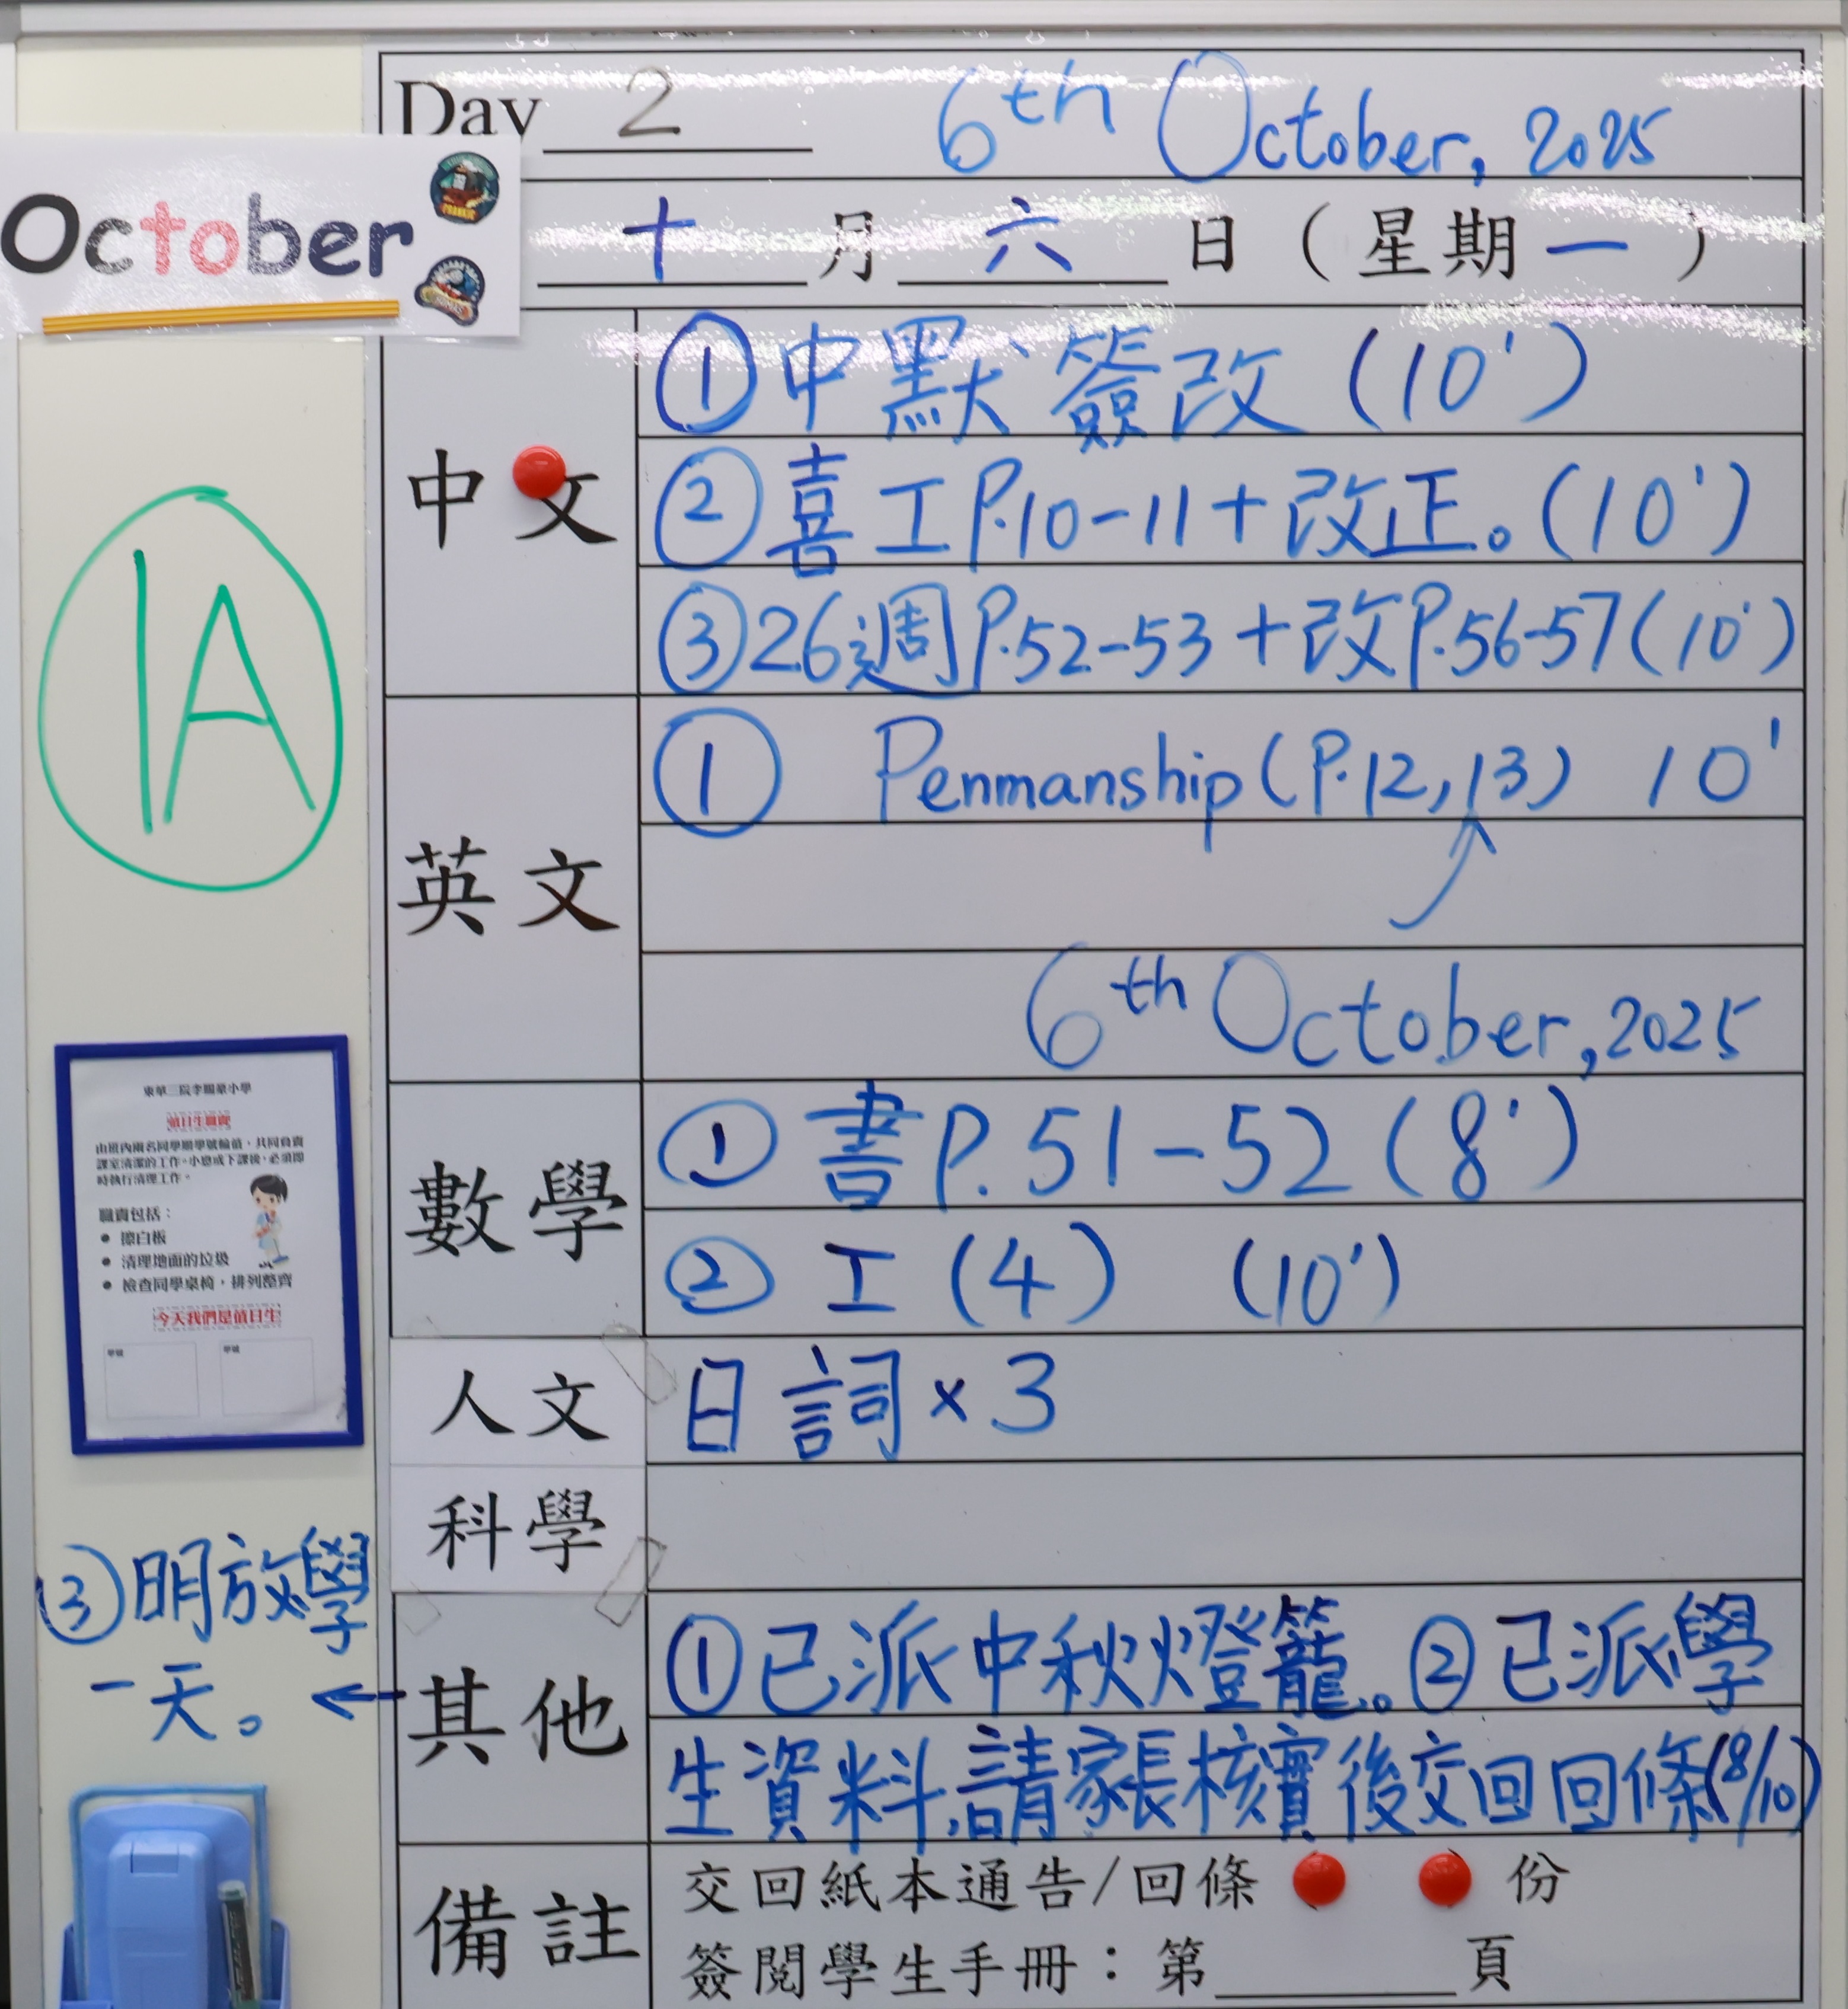 Day 2 6th October, 2025
October
十 月 六 日 （星期一）
1A
中文
①中默簽改 (10')
②喜工P.10-11+改正。(10')
③26週P.52-53+改P.56-57(10')
英文
① Penmanship (P.12,13) 10'
6th October, 2025
數學
① 書P.51-52 (8')
② 工(4) (10')
人文
日詞×3
科學
其他
①已派中秋燈籠。②已派學
生資料,請家長核實後交回回條(8/10)
③明放學
一天。 ←
備註
交回紙本通告/回條 份
簽閱學生手冊：第 頁
東華三院李賜豪小學
值日生職責
由班內兩名同學順學號輪值，共同負責
課室清潔的工作。小息或下課後，必須即
時執行清理工作。
職責包括：
• 擦白板
• 清理地面的垃圾
• 檢查同學桌椅，排列整齊
今天我們是值日生
學號 學號